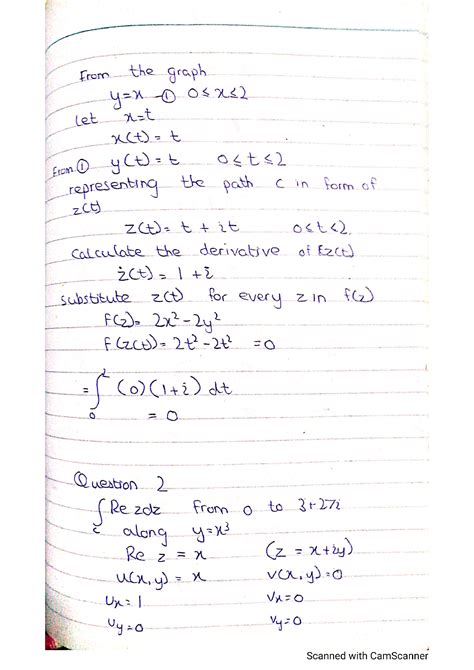 From the graph
y=x -① 0≤x≤2
let x=t
x(t) = t
From ① y(t) = t 0≤t≤2
representing the path c in form of
z(t)
z(t)= t + it 0≤t≤2
Calculate the derivative of z(t)
ż(t) = 1 + i
substitute z(t) for every z in f(z)
f(z)= 2x²-2y²
f(z(t)= 2t²-2t² =0
=∫₀² (0)(1+i) dt
= 0
Question 2
∫c Re zdz from 0 to 3+27i
along y=x³
Re z = x (z = x+iy)
u(x,y) = x v(x,y)=0
ux= 1 vx=0
uy=0 vy=0
Scanned with CamScanner